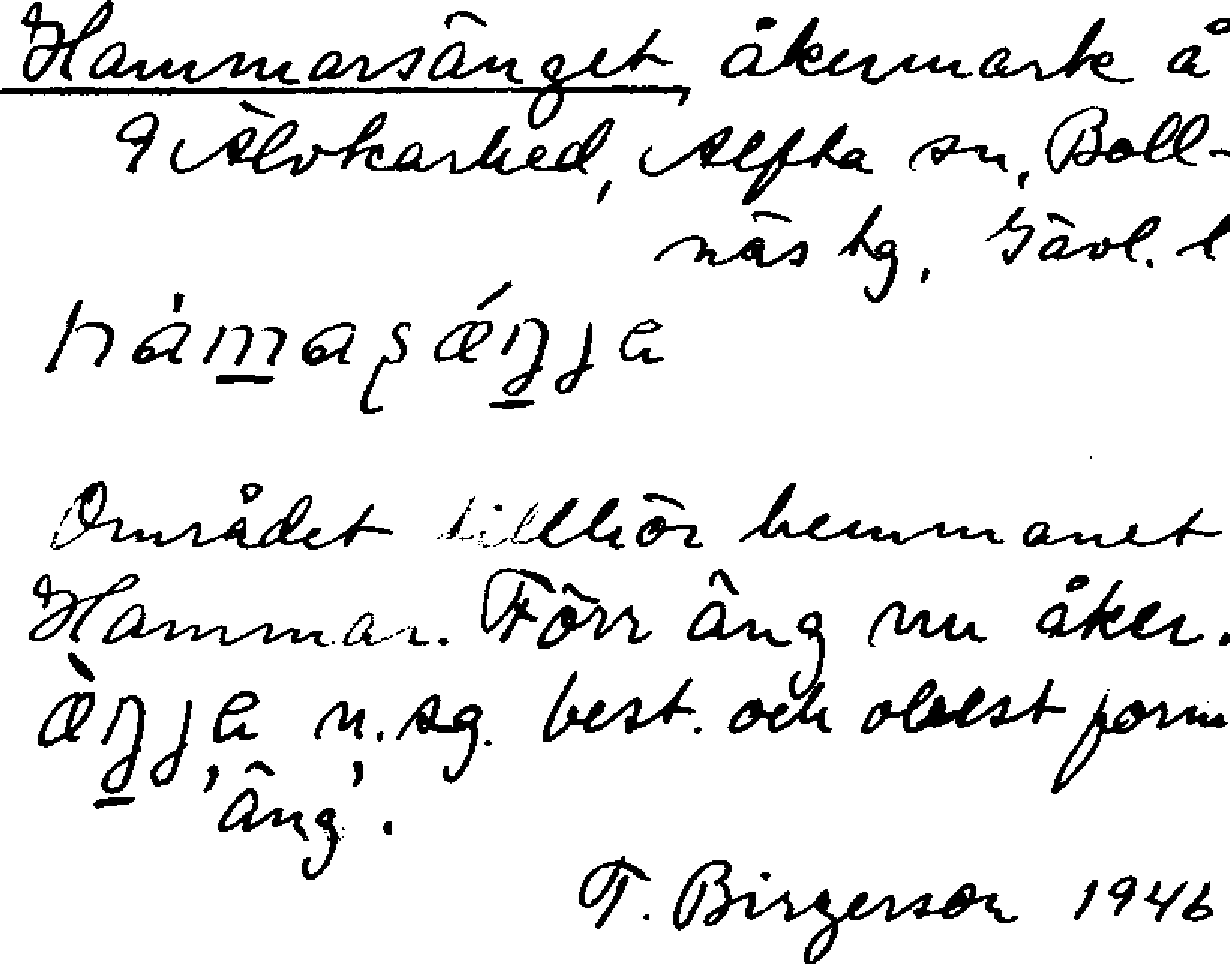 Hammarsänget, åkermark å
9 Älvkarhed, Alfta sn, Boll-
näs hg, Gävl. l
hámaʂǽŋje
Området tillhör hemmanet
Hammar. Förr äng nu åker.
æ̀ŋje n. sg. best. och obest form
'äng'.
T. Birgerson 1946